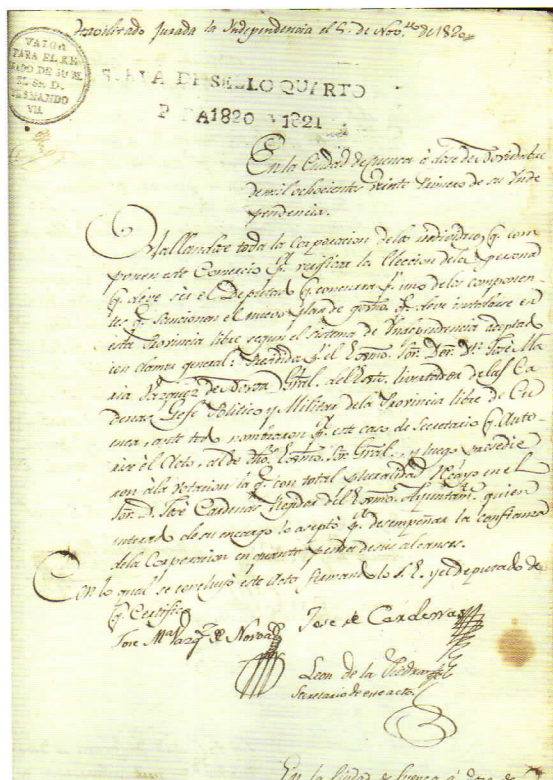 Havilitado Jurada la Independencia el 5, de Nov.re de 1820
VALGA
PARA EL REY
NADO DE SU M.
EL SR. D.
FERNANDO
VII.
SELLO QUARTO
PARA 1820 Y 1821
En la Ciudad de Cuenca á dose de Noviembre
de mil ochocientos veinte Primero de su Inde
pendencia.
Hallandose toda la Corporacion de los individuos q. com
ponen este Comercio p.a verificar la Eleccion de la persona
q. deve ser el Deputado q. concurra p.r uno de los componen
tes q. sancionen el nuevo plan de govno. q. deve instalarse en
esta Provincia libre segun el sistema de Independencia adoptad
en clamor general: Precidida p.r el Exmo. Sor. Dor. Dn. José Ma
ria Vazquez de Noboa Gral. del Exto. livertador de las Ca
denas, Gefe Politico y Militar dela Provincia libre de Cu
enca, ante tod nombraron p.a este caso de Secretario q. Auto
rise el Acto, al de dho. Exmo. Sor. Gral., y luego prosedie
ron à la Votacion la q. con total pluralidad recayo en el
Sor. D. José Cardenas Regidor del Exmo. Ayuntam.to quien
enterad de su encargo lo aceptó p.a desempeñar la confianza
dela Corporacion en quanto penda de sus alcanses.
Con lo qual se concluyó este Acto firmando lo S. E. y el deputado de
q. Certifico
José M.a Vazq.z de Novoa
Jose de Cardenas
Leon de la Piedra
Secretario de ese acto.
En la Ciudad de Cuenca á doze de